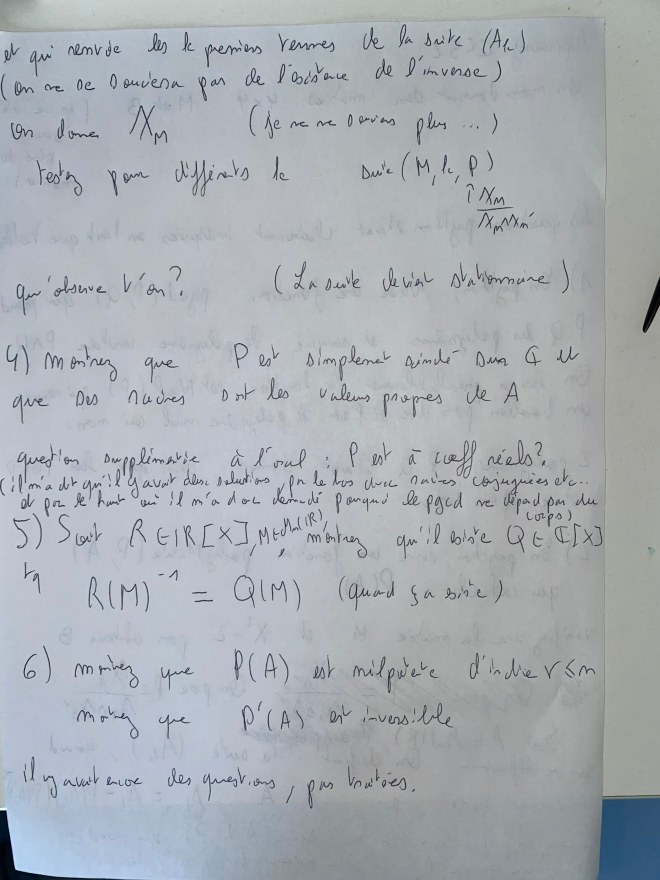 et qui renvoie les k premiers termes de la suite (Ak)
(on ne se souciera pas de l'existence de l'inverse)
on donne χ_M (je ne me souviens plus ...)
testez pour différents k suite (M, k, P)
↑ χ_M / χ_M ∧ χ_M'
qu'observe t'on? (La suite devient stationnaire)
4) montrez que P est simplement scindé sur ℂ et
que ses racines sont les valeurs propres de A
question supplémentaire à l'oral : P est à coeff réels?
(il m'a dit qu'il y avait deux solutions, par le bas avec racines conjuguées etc..
et par le haut où il m'a donc demandé pourquoi le pgcd ne dépend pas du corps)
5) Soit R ∈ ℝ[X], M ∈ Mn(ℝ), montrez qu'il existe Q ∈ ℂ[X]
tq R(M)⁻¹ = Q(M) (quand ça existe)
6) montrez que P(A) est nilpotente d'indice r ≤ n
montrez que P'(A) est inversible
il y avait encore des questions, pas traitées.